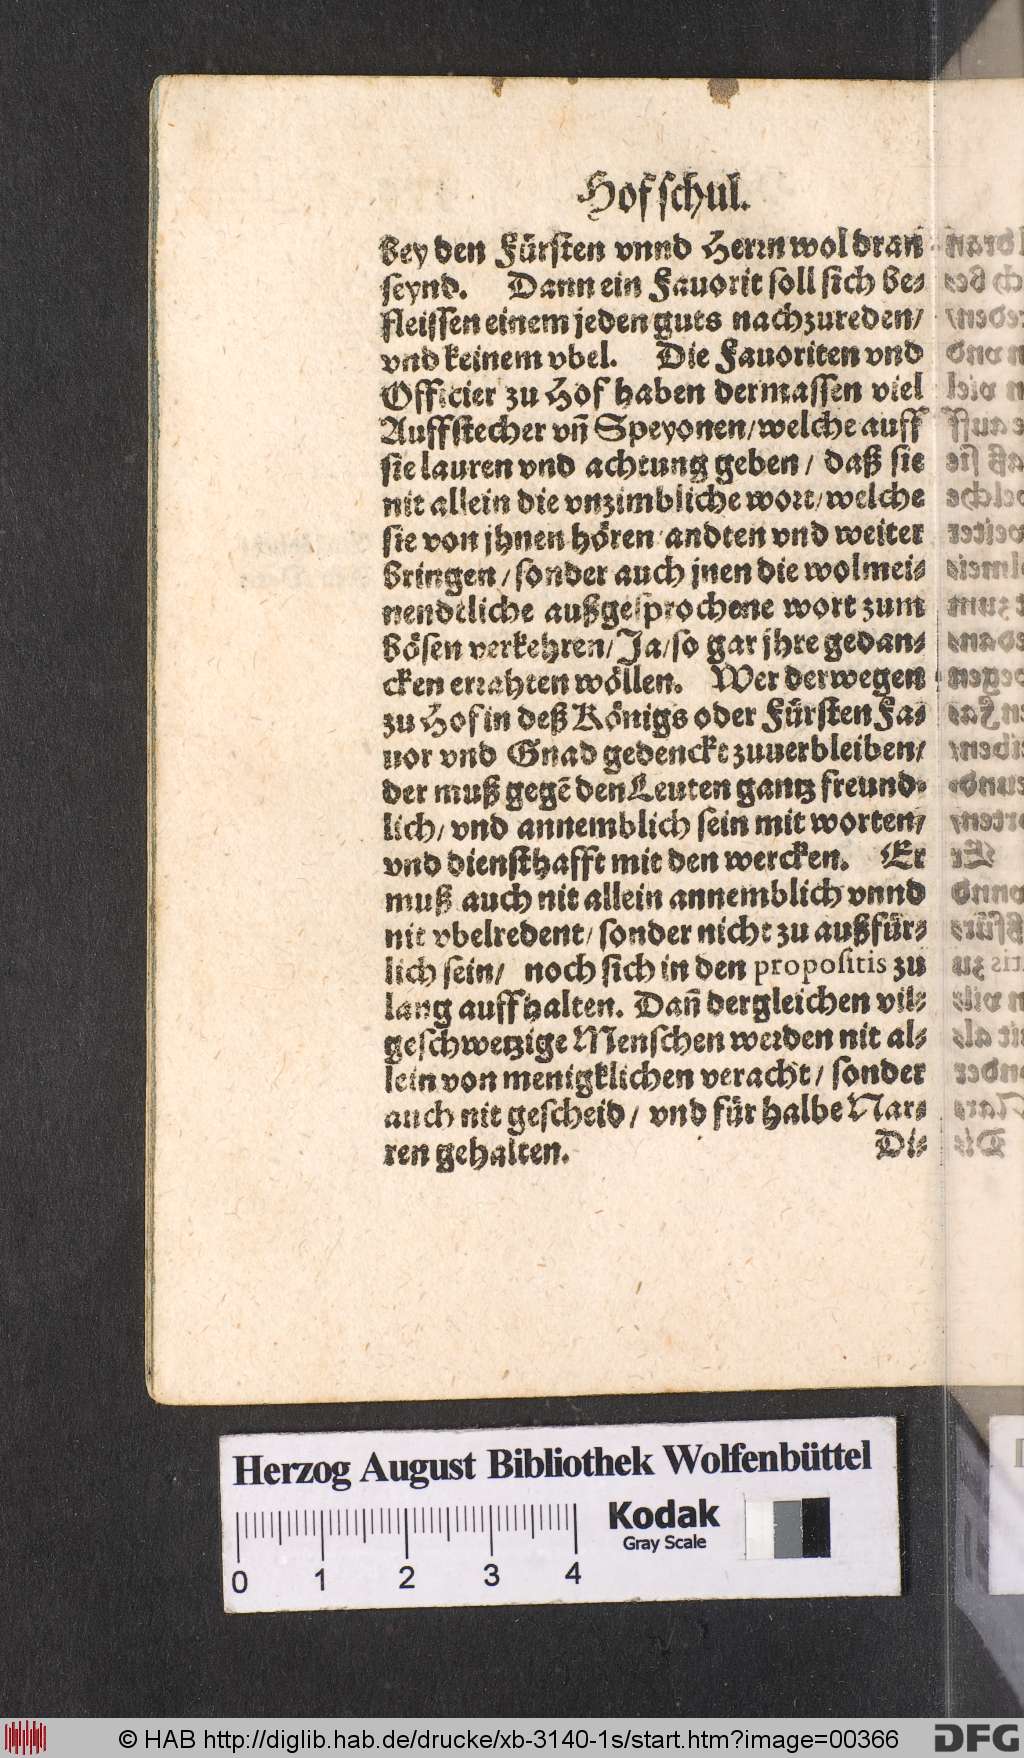 Hofschul.
bey den Fürsten vnnd Herrn wol dran
seynd. Dann ein Fauorit soll sich be-
fleissen einem jeden guts nachzureden/
vnd keinem vbel. Die Fauoriten vnd
Officier zu Hof haben dermassen viel
Auffstecher vñ Speyonen/welche auff
sie lauren vnd achtung geben / daß sie
nit allein die vnzimbliche wort/welche
sie von jhnen hören andten vnd weiter
bringen /sonder auch jnen die wolmei-
nendtliche außgesprochene wort zum
bösen verkehren/Ja/so gar jhre gedan-
cken errahten wöllen. Wer derwegen
zu Hof in deß Königs oder Fürsten Fa-
uor vnd Gnad gedenckt zuuerbleiben/
der muß gegē den Leuten gantz freund-
lich/ vnd annemblich sein mit worten/
vnd diensthafft mit den wercken. Er
muß auch nit allein annemblich vnnd
nit vbelredent/ sonder nicht zu außfür-
lich sein/ noch sich in den propositis zu
lang auffhalten. Dañ dergleichen vil-
geschwetzige Menschen werden nit al-
lein von menigklichen veracht/ sonder
auch nit gescheid / vnd für halbe Nar-
ren gehalten.
Di-
Herzog August Bibliothek Wolfenbüttel
Kodak
Gray Scale
0 1 2 3 4
© HAB http://diglib.hab.de/drucke/xb-3140-1s/start.htm?image=00366
DFG